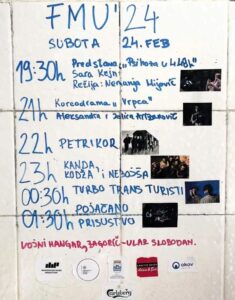 FMU' 24
SUBOTA 24. FEB
19:30h Predstava „Psihoza u 4.48h"
Sara Kejn
Režija: Nemanja Mijović
21h Koreodrama „Vrpca"
Aleksandra i Jelica
22h PETRIKOR
23h KANDA,
KODŽA i NEBOJŠA
00:30h TURBO TRANS TURISTI
01:30h POJAČANO
PRISUSTVO
VOJNI HANGAR, ZAGORIČ - ULAZ SLOBODAN.
Carlsberg
okov